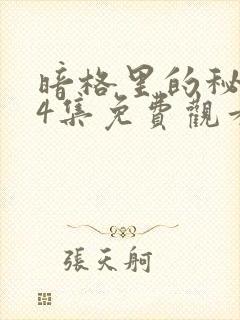 暗格里的秘
4集免費觀
張天舸